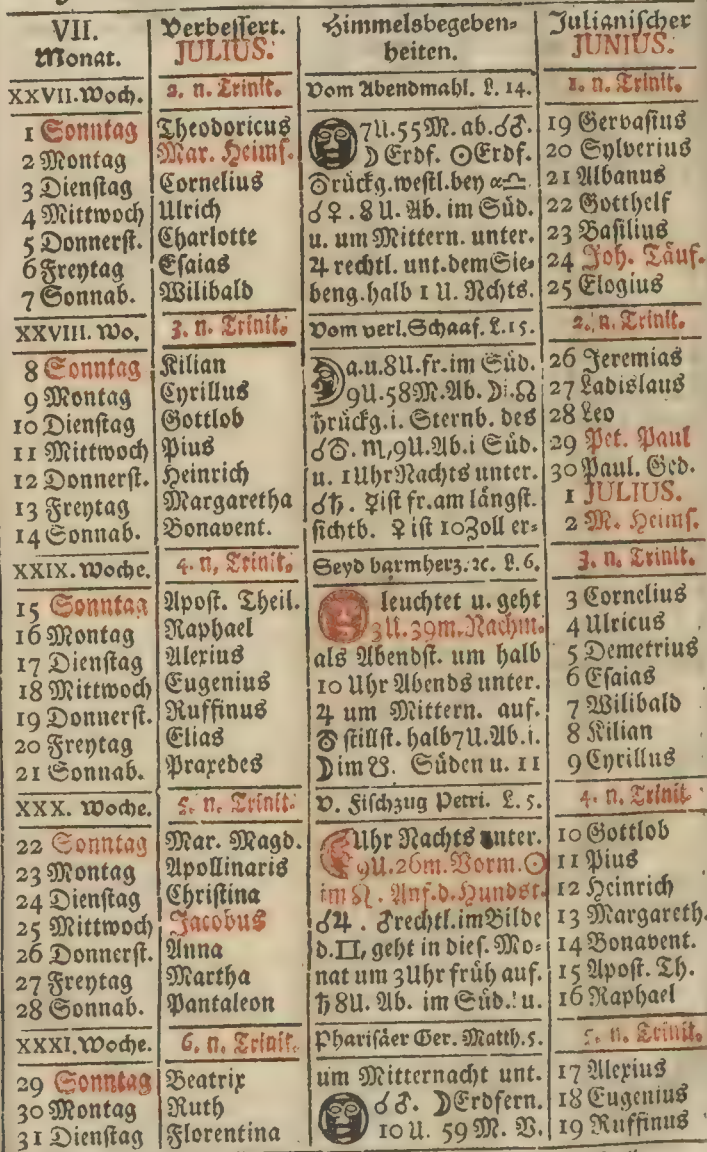 VII. Monat. | Verbessert. JULIUS. | Himmelsbegeben= heiten. | Julianischer JUNIUS.
XXVII. Woch. | 2. n. Trinit. | Vom Abendmahl. L. 14. | 1. n. Trinit.
1 Sonntag | Theodoricus | 7U. 55M. ab. ☌♂. | 19 Gervasius
2 Montag | Mar. Heims. | ☽ Erdf. ☉Erdf. | 20 Sylverius
3 Dienstag | Cornelius | rückg. westl. bey α♎ | 21 Albanus
4 Mittwoch | Ulrich | ☌♀. 8 U. Ab. im Süd. | 22 Gotthelf
5 Donnerst. | Charlotte | u. um Mittern. unter. | 23 Basilius
6 Freytag | Esaias | ♃ rechtl. unt. dem Sie= | 24 Joh. Täuf.
7 Sonnab. | Wilibald | beng. halb 1 U. Nchts. | 25 Elogius
XXVIII. Wo. | 3. n. Trinit. | Vom verl. Schaaf. L. 15. | 2. n. Trinit.
8 Sonntag | Kilian | a. u. 8U. fr. im Süd. | 26 Jeremias
9 Montag | Cyrillus | 9U. 58M. Ab. ☽ i. ☊ | 27 Ladislaus
10 Dienstag | Gottlob | ♄ rückg. i. Sternb. des | 28 Leo
11 Mittwoch | Pius | ♏, 9U. Ab. i Süd. | 29 Pet. Paul
12 Donnerst. | Heinrich | u. 1 Uhr Nachts unter. | 30 Paul. Ged.
13 Freytag | Margaretha | ☌♄. ☿ ist fr. am längst. | 1 JULIUS.
14 Sonnab. | Bonavent. | sichtb. ♀ ist 10 Zoll er= | 2 M. Heims.
XXIX. Woche. | 4. n. Trinit. | Seyd barmherz. ꝛc. L. 6. | 3. n. Trinit.
15 Sonntag | Apost. Theil. | leuchtet u. geht | 3 Cornelius
16 Montag | Raphael | 3U. 39m. Nachm. | 4 Ulricus
17 Dienstag | Alexius | als Abendst. um halb | 5 Demetrius
18 Mittwoch | Eugenius | 10 Uhr Abends unter. | 6 Esaias
19 Donnerst. | Ruffinus | ♃ um Mittern. auf. | 7 Wilibald
20 Freytag | Elias | stillst. halb 7 U. Ab. i. | 8 Kilian
21 Sonnab. | Praxedes | ☽ im ☋. Süden u. 11 | 9 Cyrillus
XXX. Woche. | 5. n. Trinit. | V. Fischzug Petri. L. 5. | 4. n. Trinit.
22 Sonntag | Mar. Magd. | Uhr Nachts unter. | 10 Gottlob
23 Montag | Apollinaris | 9U. 26m. Vorm. ☉ | 11 Pius
24 Dienstag | Christina | im ♌. Anf. d. Hundst. | 12 Heinrich
25 Mittwoch | Jacobus | ☌♃. ♂ rechtl. im Bilde | 13 Margareth.
26 Donnerst. | Anna | d. ♊, geht in dies. Mo= | 14 Bonavent.
27 Freytag | Martha | nat um 3 Uhr früh auf. | 15 Apost. Th.
28 Sonnab. | Pantaleon | ♄ 8U. Ab. im Süd. u. | 16 Raphael
XXXI. Woche. | 6. n. Trinit. | Pharisäer Ger. Matth. 5. | 5. n. Trinit.
29 Sonntag | Beatrix | um Mitternacht unt. | 17 Alexius
30 Montag | Ruth | ☌♂. ☽Erdfern. | 18 Eugenius
31 Dienstag | Florentina | 10 U. 59 M. V. | 19 Ruffinus